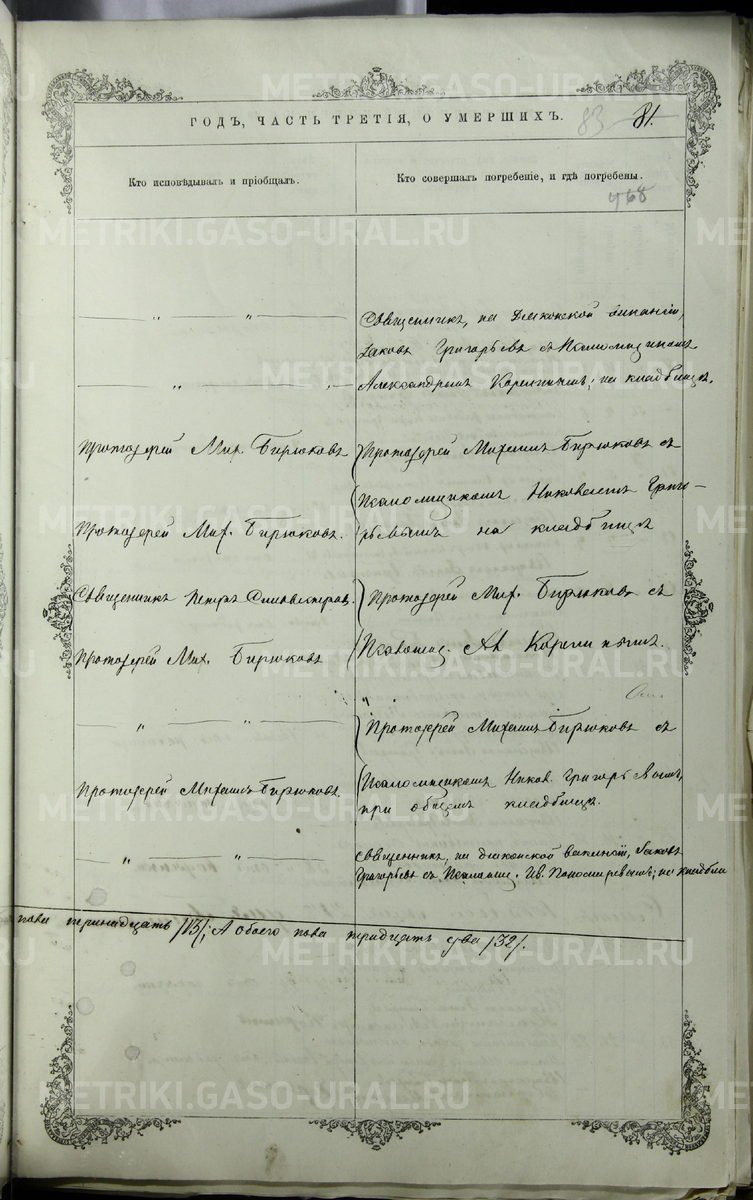 ГОДЪ, ЧАСТЬ ТРЕТІЯ, О УМЕРШИХЪ.
83 81.
Кто исповѣдывалъ и пріобщалъ.
Кто совершалъ погребеніе, и гдѣ погребены.
468
— „ — „ —
Священникъ, на дьяконской вакансіи,
Іаковъ Григорьевъ съ Псаломщикомъ
— „ — „ —
Александромъ Корелинымъ; на кладбищѣ.
Протоіерей Мих. Бирюковъ
Протоіерей Михаилъ Бирюковъ съ
Псаломщикомъ Николаемъ Григо-
Протоіерей Мих. Бирюковъ.
рьевымъ на кладбищѣ
Священникъ Петръ Сильвестровъ.
Протоіерей Мих. Бирюковъ съ
Протоіерей Мих. Бирюковъ
Псаломщ. Ал. Корелинымъ.
— „ — „ —
Протоіерей Михаилъ Бирюковъ съ
Протоіерей Михаилъ Бирюковъ.
Псаломщикомъ Никол. Григорьевымъ,
при общемъ кладбищѣ.
— „ — „ —
Священникъ, на дьяконской вакансіи, Іаковъ
Григорьевъ съ Псаломщ. Ив. Пономаревымъ; на кладбищ
пола тринадцать /13/; А обоего пола тридцать два /32/.
METRIKI.GASO-URAL.RU